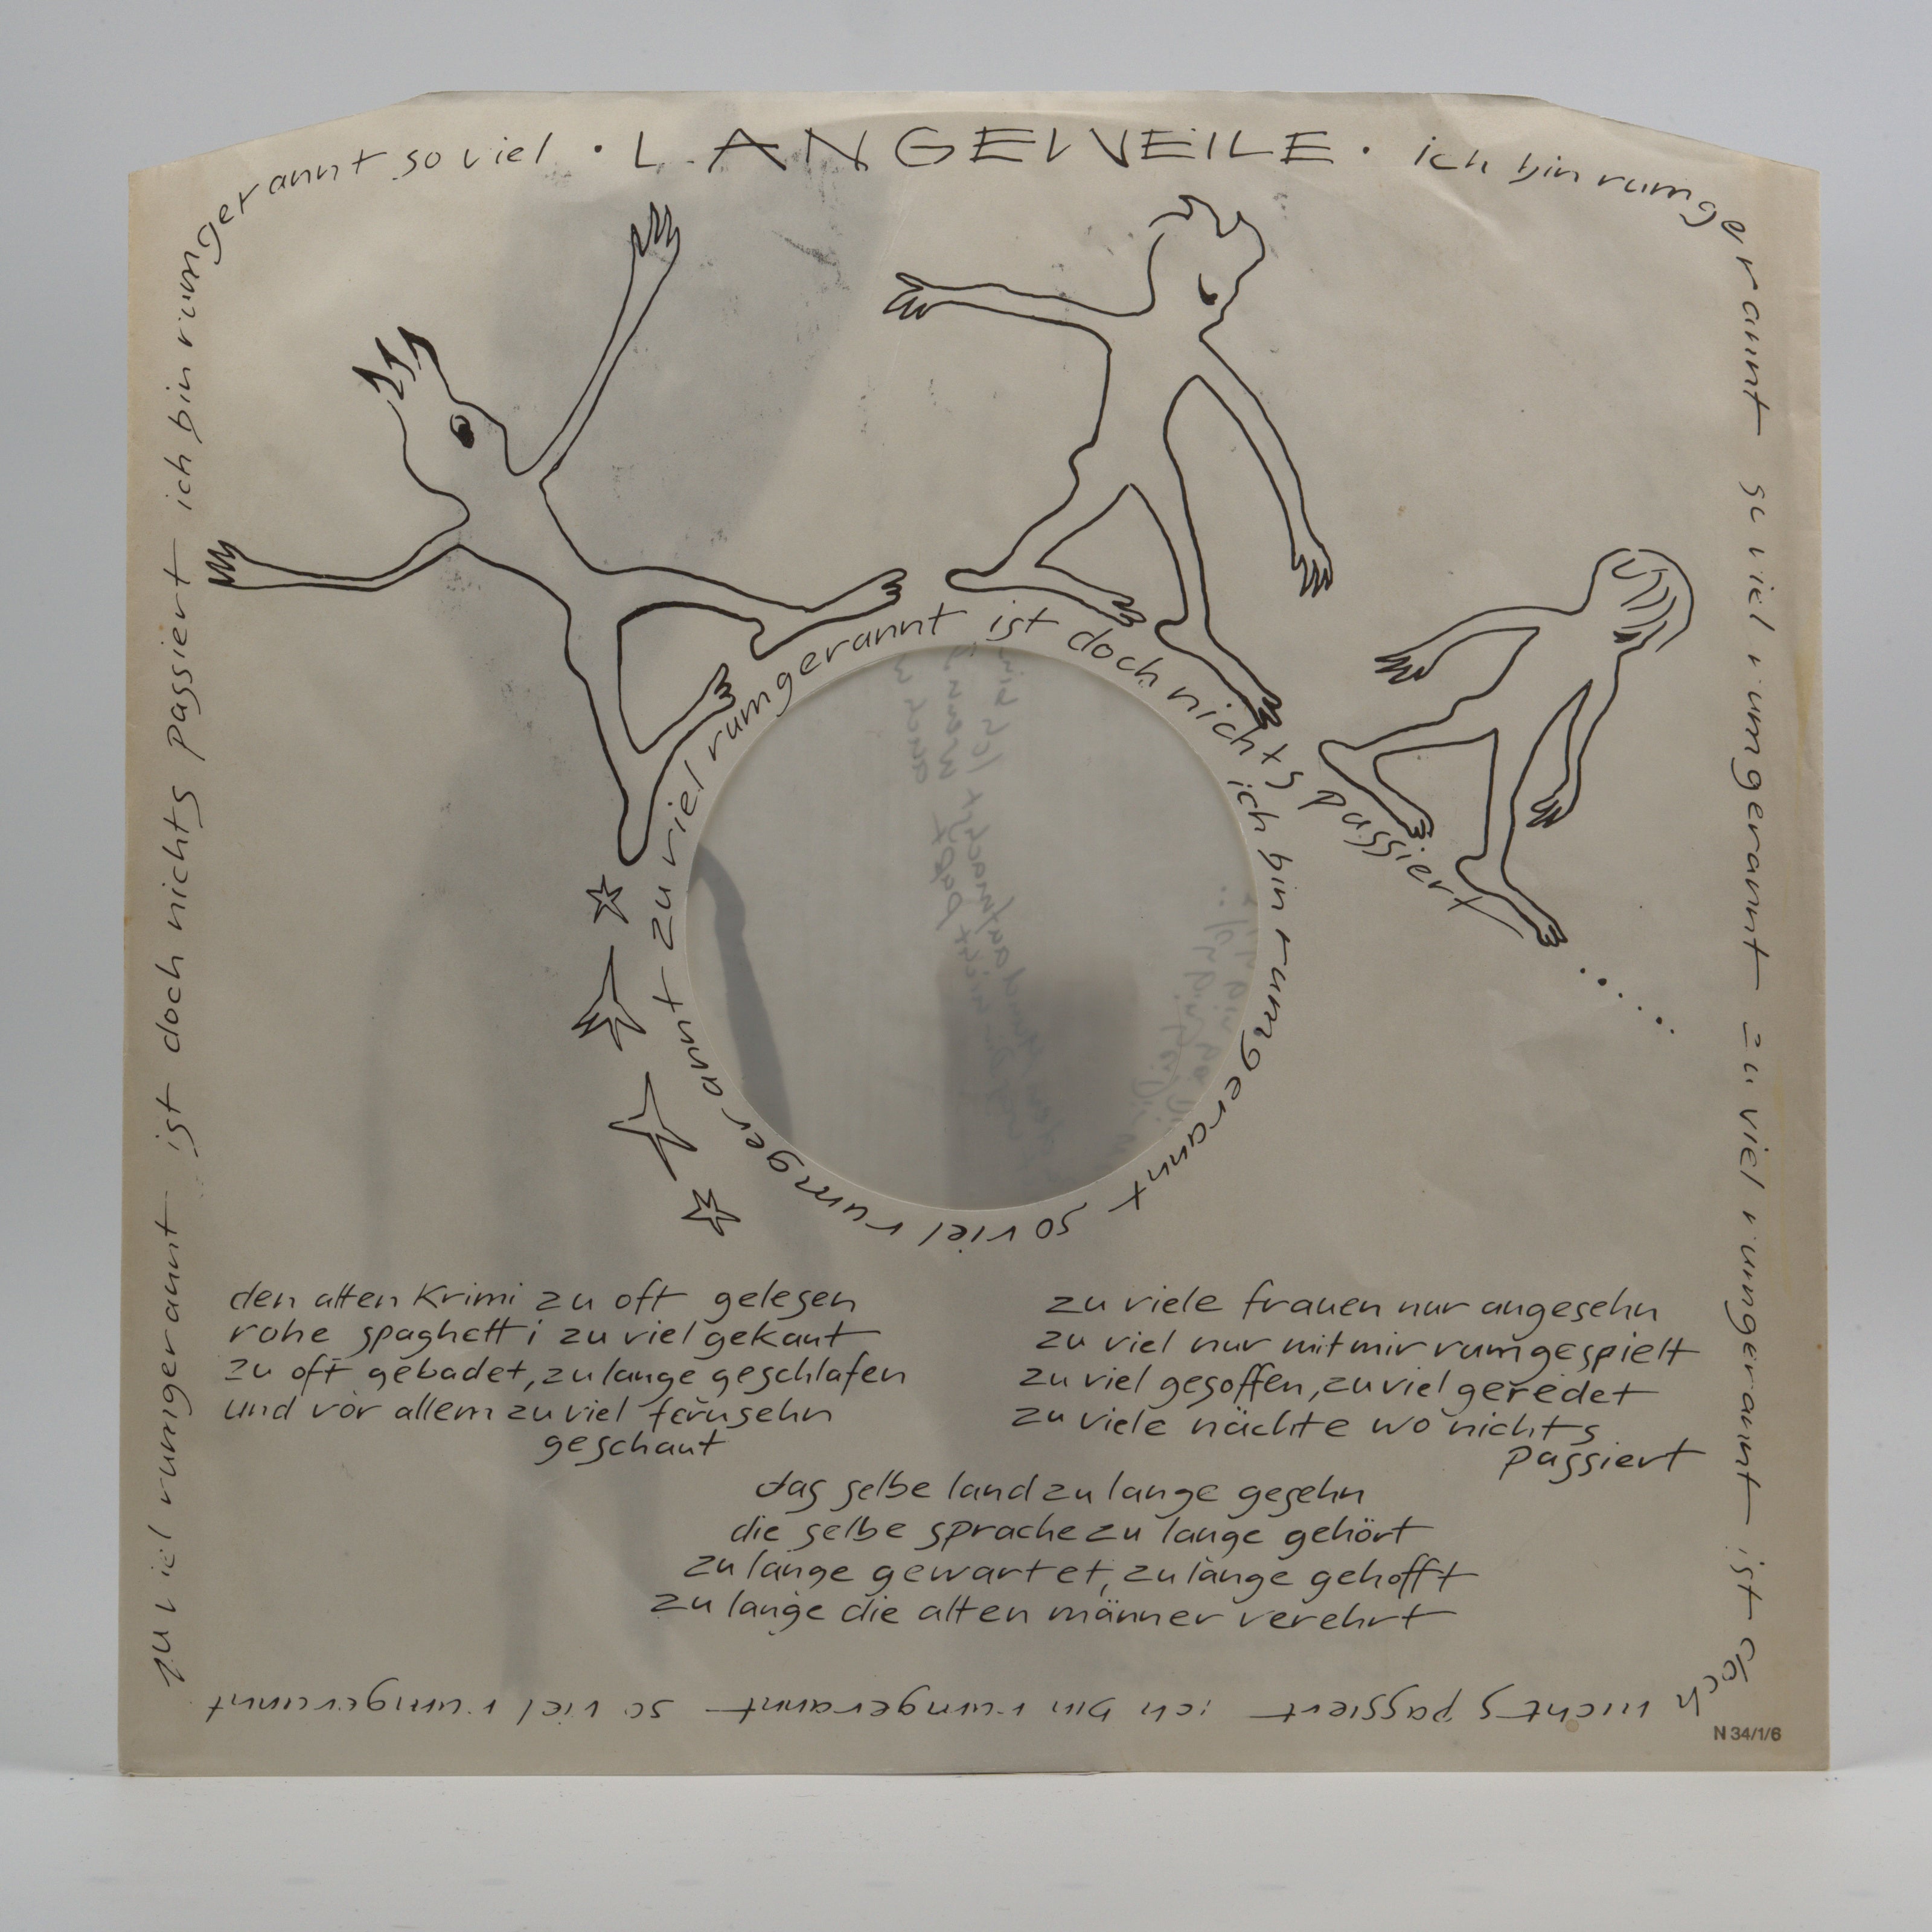 · LANGEWEILE ·
ich bin rumgerannt so viel rumgerannt zu viel rumgerannt ist doch nichts passiert ich bin rumgerannt so viel rumgerannt
zu viel rumgerannt ist doch nichts passiert ich bin rumgerannt so viel
ich bin rumgerannt so viel rumgerannt zu viel rumgerannt ist doch nichts passiert
den alten Krimi zu oft gelesen
rohe spaghetti zu viel gekaut
zu oft gebadet, zu lange geschlafen
und vor allem zu viel fernsehn
geschaut
zu viele frauen nur angesehn
zu viel nur mit mir rumgespielt
zu viel gesoffen, zu viel geredet
zu viele nächte wo nichts
passiert
das selbe land zu lange gesehn
die selbe sprache zu lange gehört
zu lange gewartet, zu lange gehofft
zu lange die alten männer verehrt
N 34/1/6